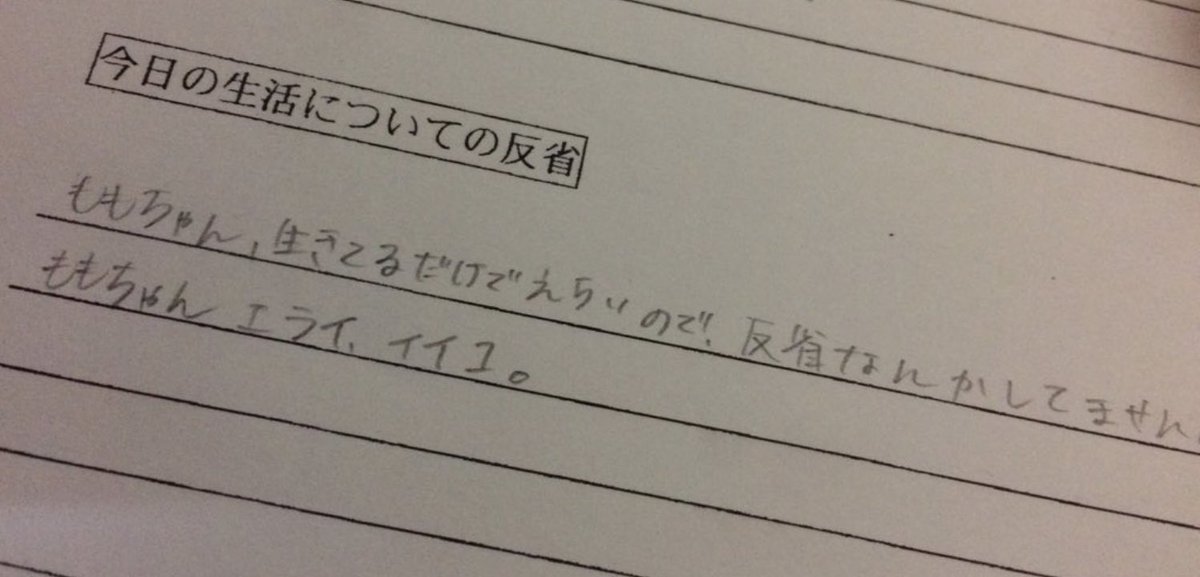 今日の生活についての反省
ももちゃん、生きてるだけでえらいので、反省なんかしてません
ももちゃんエライ、イイコ。